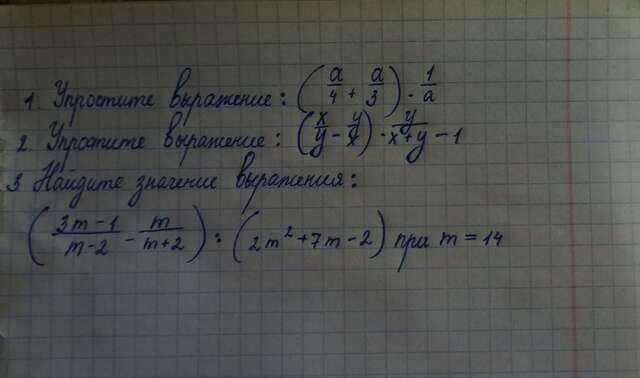 1. Упростите выражение: (a/4 + a/3) · 1/a
2. Упростите выражение: (x/y - y/x) · y/x+y - 1
3 Найдите значение выражения:
(3m-1/m-2 - m/m+2) : (2m²+7m-2) при m = 14